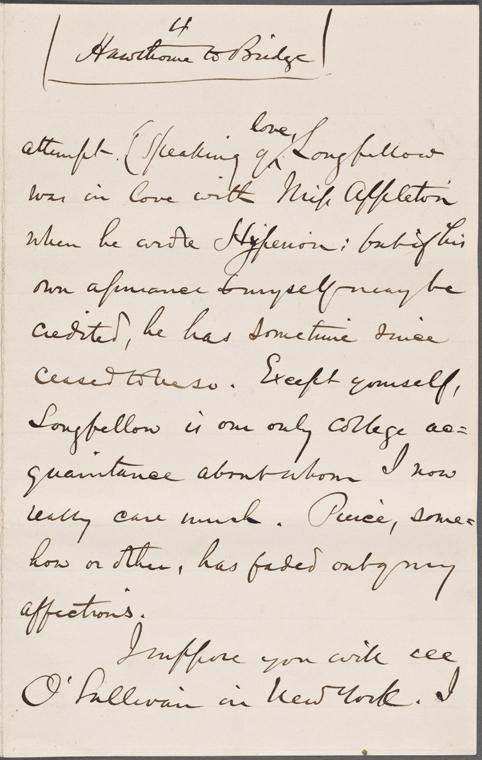 4
Hawthorne to Bridge
attempt. (Speaking of love, Longfellow
was in love with Miss Appleton
when he wrote Hyperion; but if his
own assurance to myself may be
credited, he has sometime since
ceased to be so. Except yourself,
Longfellow is our only college ac=
quaintance about whom I now
really care much. Pierce, some=
how or other, has faded out of my
affections.
I suppose you will see
O'Sullivan in New York. I